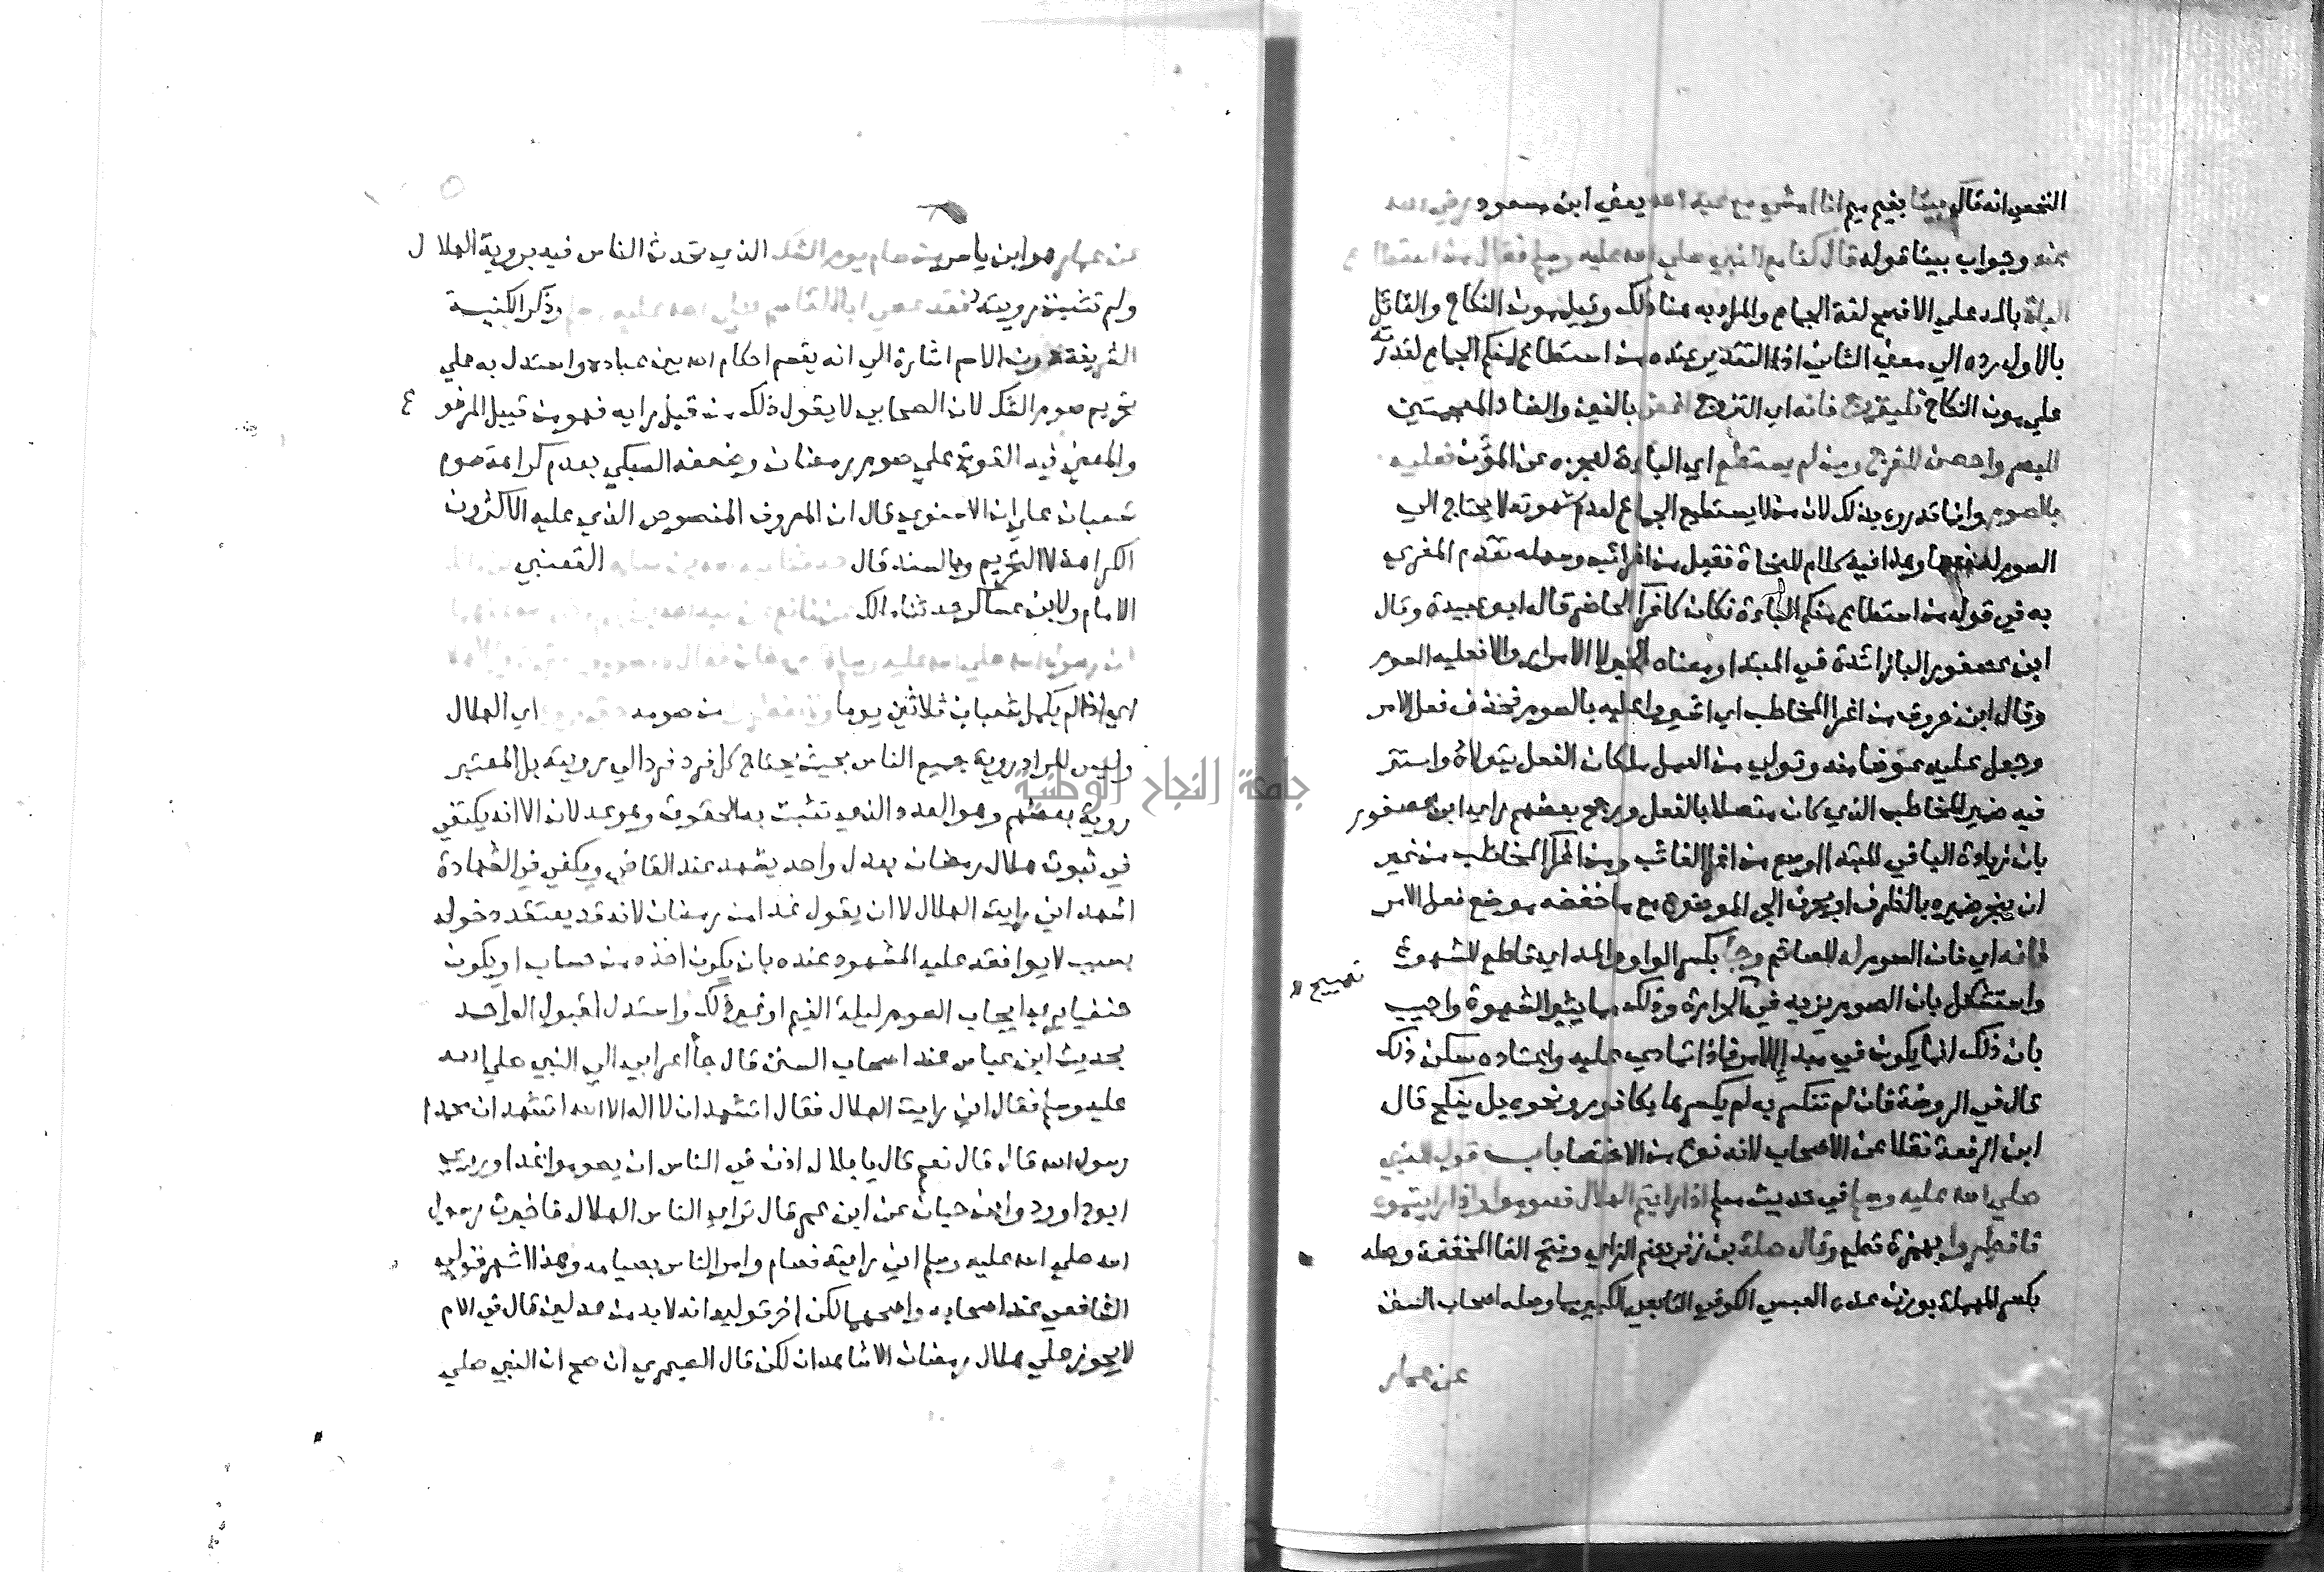 النخعي انه قال بينا بغير ميم انا امشي مع عبد الله يعني ابن مسعود رضي الله
عنه وجواب بينا قوله قال كنا مع النبي صلي الله عليه وسلم فقال من استطاع
الباة بالمد علي الافصح لغة الجماع والمراد به هنا ذلك وقيل مون النكاح والقائل
بالاول رده الي معني الثاني اذ التقدير عنده من استطاع منكم الجماع لقدرته
علي مون النكاح فليتزوج فانه اي التزوج اغض بالغين والضاد المعجمتين
للبصر واحصن للفرج ومن لم يستطع اي الباءة لعجزه عن المؤن فعليه
بالصوم وانما قدروه بذلك لان من لا يستطيع الجماع لعدم شهوته لا يحتاج الي
الصوم لدفعها وهذا فيه كلام للنحاة فقيل من اغرا الغائب وسهله تقدم المغري
به في قوله من استطاع منكم الباءة فكان كاغرا الحاضر قاله ابو عبيدة وقال
ابن عصفور البا زائدة في المبتدا ومعناه الخبر لا الامر اي والا فعليه الصوم
وقال ابن خروف من اغرا المخاطب اي اشيروا عليه بالصوم فحذف فعل الامر
وجعل عليه عوضا منه وتولي من العمل ما كان الفعل يتولاه واستتر
فيه ضمير المخاطب الذي كان متصلا بالفعل ورجح بعضهم راي ابن عصفور
بان زيادة البا في المبتدا اوسع من اغرا الغائب ومن اغرا المخاطب من غير
ان ينجر ضميره بالظرف او بحرف الجر الموضوع مع ما خفضه موضع فعل الامر
فانه اي فان الصوم له للصائم وجا بكسر الواو والمد اي قاطع لشهوته
واستشكل بان الصوم يزيد في تهييج الحرارة وذلك مما يثير الشهوة واجيب
بان ذلك انما يكون في مبدا الامر فاذا تمادي عليه واعتاده سكن ذلك
قال في الروضة فان لم تنكسر به لم يكسرها بكافور ونحوه بل ينكح قال
ابن الرفعة نقلا عن الاصحاب لانه نوع من الاختصا باب قول النبي
صلي الله عليه وسلم في حديث مسلم اذا رايتم الهلال فصوموا واذا رايتموه
فافطروا بهمزة قطع وقال صلة بن زفر بضم الزاي وفتح الفا المخففة وصله
بكسر المهملة بوزن عده العبسي الكوفي التابعي الكبير مما وصله اصحاب السنن
عن عمار
عن عمار هو ابن ياسر من صام يوم الشك الذي تحدث الناس فيه بروية الهلال
ولم تثبت رويته فقد عصي ابا القاسم صلي الله عليه وسلم وذكر الكنية
الشريفة دون الاسم اشارة الي انه يقسم احكام الله بين عباده واستدل به علي
تحريم صوم الشك لان الصحابي لا يقول ذلك من قبل رايه فهو من قبيل المرفوع
والمعني فيه القوة علي صوم رمضان وضعفه السبكي بعدم كراهة صوم
شعبان علي ان الاسنوي قال ان المعروف المنصوص الذي عليه الاكثرون
الكراهة لا التحريم وبالسند قال القعنبي
الامام ولابن عساكر حدثنا مالك
ان رسول الله صلي الله عليه وسلم
اي اذا لم يكمل شعبان ثلاثين يوما من صومه اي الهلال
وليس المراد روية جميع الناس بحيث يحتاج كل فرد فرد الي رويته بل المعتبر
روية بعضهم وهو العدد الذي تثبت به الحقوق وهو عدلان الا انه يكتفي
في ثبوت هلال رمضان بعدل واحد يشهد عند القاضي ويكفي في الشهادة
اشهد اني رايت الهلال لا ان يقول غدا من رمضان لانه قد يعتقد دخوله
بسبب لا يوافقه عليه المشهود عنده بان يكون اخذه من حساب او يكون
حنفيا يري ايجاب الصوم ليلة الغيم او غير ذلك واستدل لقبول الواحد
بحديث ابن عباس عند اصحاب السنن قال جا اعرابي الي النبي صلي الله
عليه وسلم فقال اني رايت الهلال فقال اتشهد ان لا اله الا الله اتشهد ان محمدا
رسول الله قال قال نعم قال يا بلال اذن في الناس ان يصوموا غدا وروي
ابو داود وابن حبان عن ابن عمر قال تراي الناس الهلال فاخبرت رسول
الله صلي الله عليه وسلم اني رايته فصام وامر الناس بصيامه وهذا اشهر قولي
الشافعي عند اصحابه واصحهما لكن اخر قوليه انه لا بد من عدلين قال في الام
لا يجوز علي هلال رمضان الا شاهدان لكن قال الصيمري ان صح ان النبي صلي
جامعة النجاح الوطنية